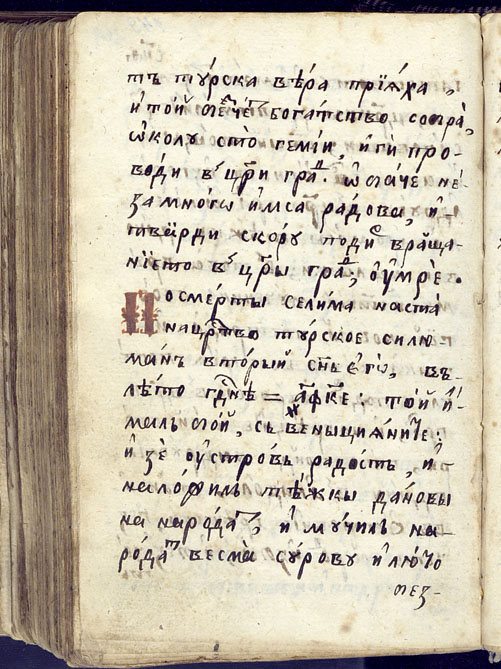 тъ ту́рска вѣ́ра прїѧ́ха ,
и҆то́й бога́тство собра̀,
ѡ҆колу сто̀ гемїи, и҆ги про-
води въ цр҃и гра́ⷣ. ѡ҆баче не́
за много и҆мса ра́дова, и҆-
скору поди́ⷭ вра́ща-
нїето въ цр҃ы гра́ⷣ, оу҆мрѐ.
По сме́рты Селима наста̀
на црⷭтво ту́рское силю
манъ вторы́й сн҃ъ є҆го̀, въ-
лѣ́то гдⷭне = ҂афк҃е: то́й и҆-
маль бой, съ веныциѧ́ниⷮе:
и҆ зѐ оу҆стровь радость, и҆-
наложиль тѣ́жкы да́новы
на наро́даⷮ, и҆ му́чиль на-
ро́даⷮ весма̀ су́рову и҆ лю́то
без-